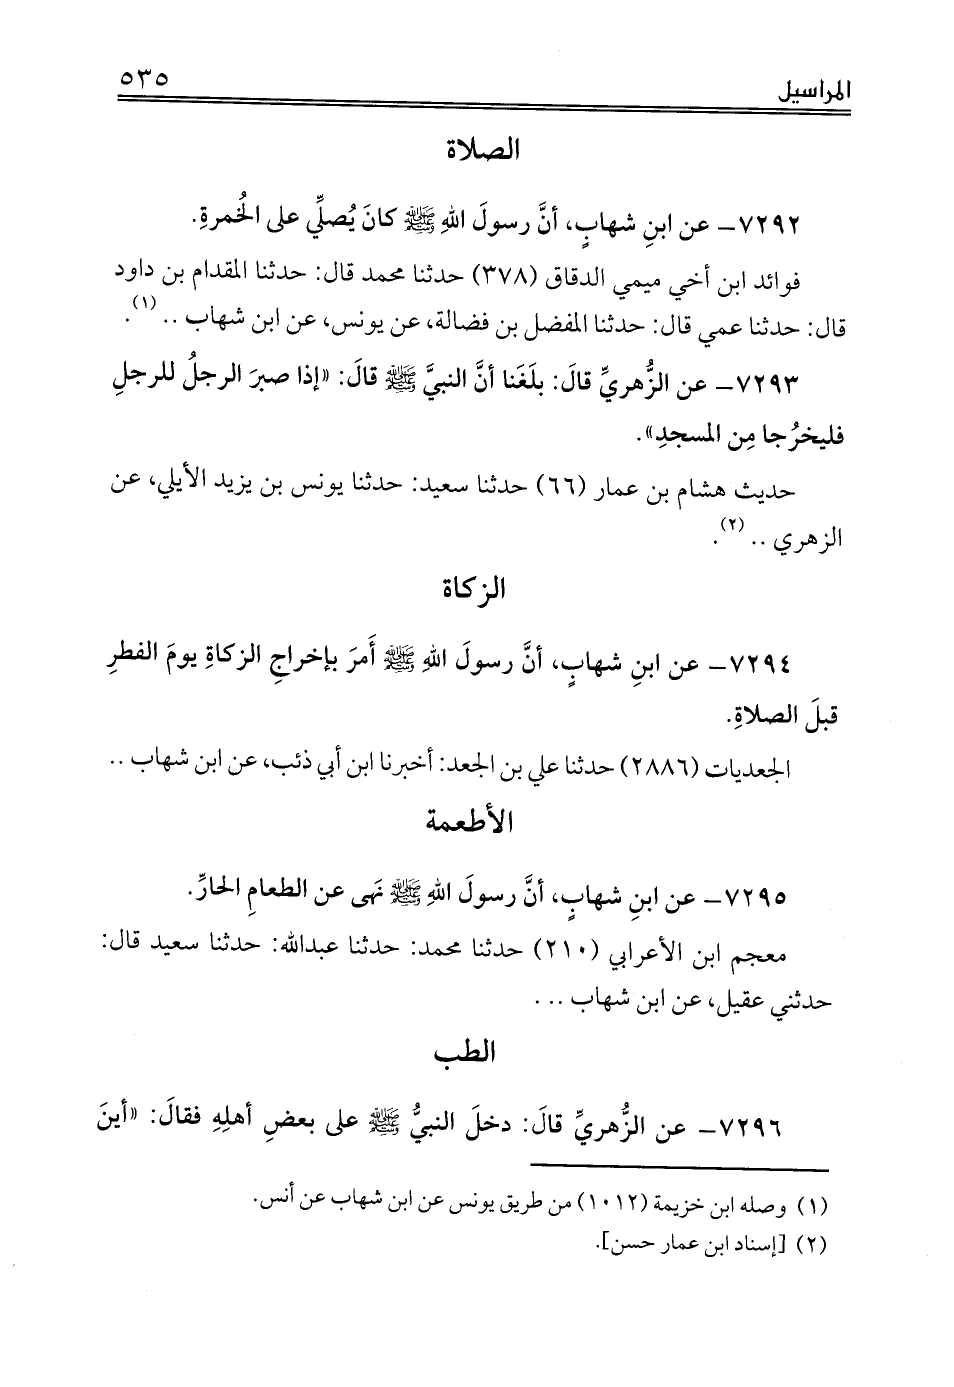 المراسيل ٥٣٥
الصلاة
٧٢٩٢ـ عن ابنِ شهابٍ، أنَّ رسولَ اللهِ ﷺ كانَ يُصلِّي على الخُمرةِ.
فوائد ابن أخي ميمي الدقاق (٣٧٨) حدثنا محمد قال: حدثنا المقدام بن داود
قال: حدثنا عمي قال: حدثنا المفضل بن فضالة، عن يونس، عن ابن شهاب .. (١).
٧٢٩٣ـ عن الزُّهريِّ قالَ: بلَغَنا أنَّ النبيَّ ﷺ قالَ: «إذا صبرَ الرجلُ للرجلِ
فليخرُجا مِن المسجدِ».
حديث هشام بن عمار (٦٦) حدثنا سعيد: حدثنا يونس بن يزيد الأيلي، عن
الزهري .. (٢).
الزكاة
٧٢٩٤ـ عن ابنِ شهابٍ، أنَّ رسولَ اللهِ ﷺ أَمرَ بإخراجِ الزكاةِ يومَ الفطرِ
قبلَ الصلاةِ.
الجعديات (٢٨٨٦) حدثنا علي بن الجعد: أخبرنا ابن أبي ذئب، عن ابن شهاب ..
الأطعمة
٧٢٩٥ـ عن ابنِ شهابٍ، أنَّ رسولَ اللهِ ﷺ نَهى عن الطعامِ الحارِّ.
معجم ابن الأعرابي (٢١٠) حدثنا محمد: حدثنا عبدالله: حدثنا سعيد قال:
حدثني عقيل، عن ابن شهاب ...
الطب
٧٢٩٦ـ عن الزُّهريِّ قالَ: دخلَ النبيُّ ﷺ على بعضِ أهلِهِ فقالَ: «أينَ
(١) وصله ابن خزيمة (١٠١٢) من طريق يونس عن ابن شهاب عن أنس.
(٢) [إسناد ابن عمار حسن].